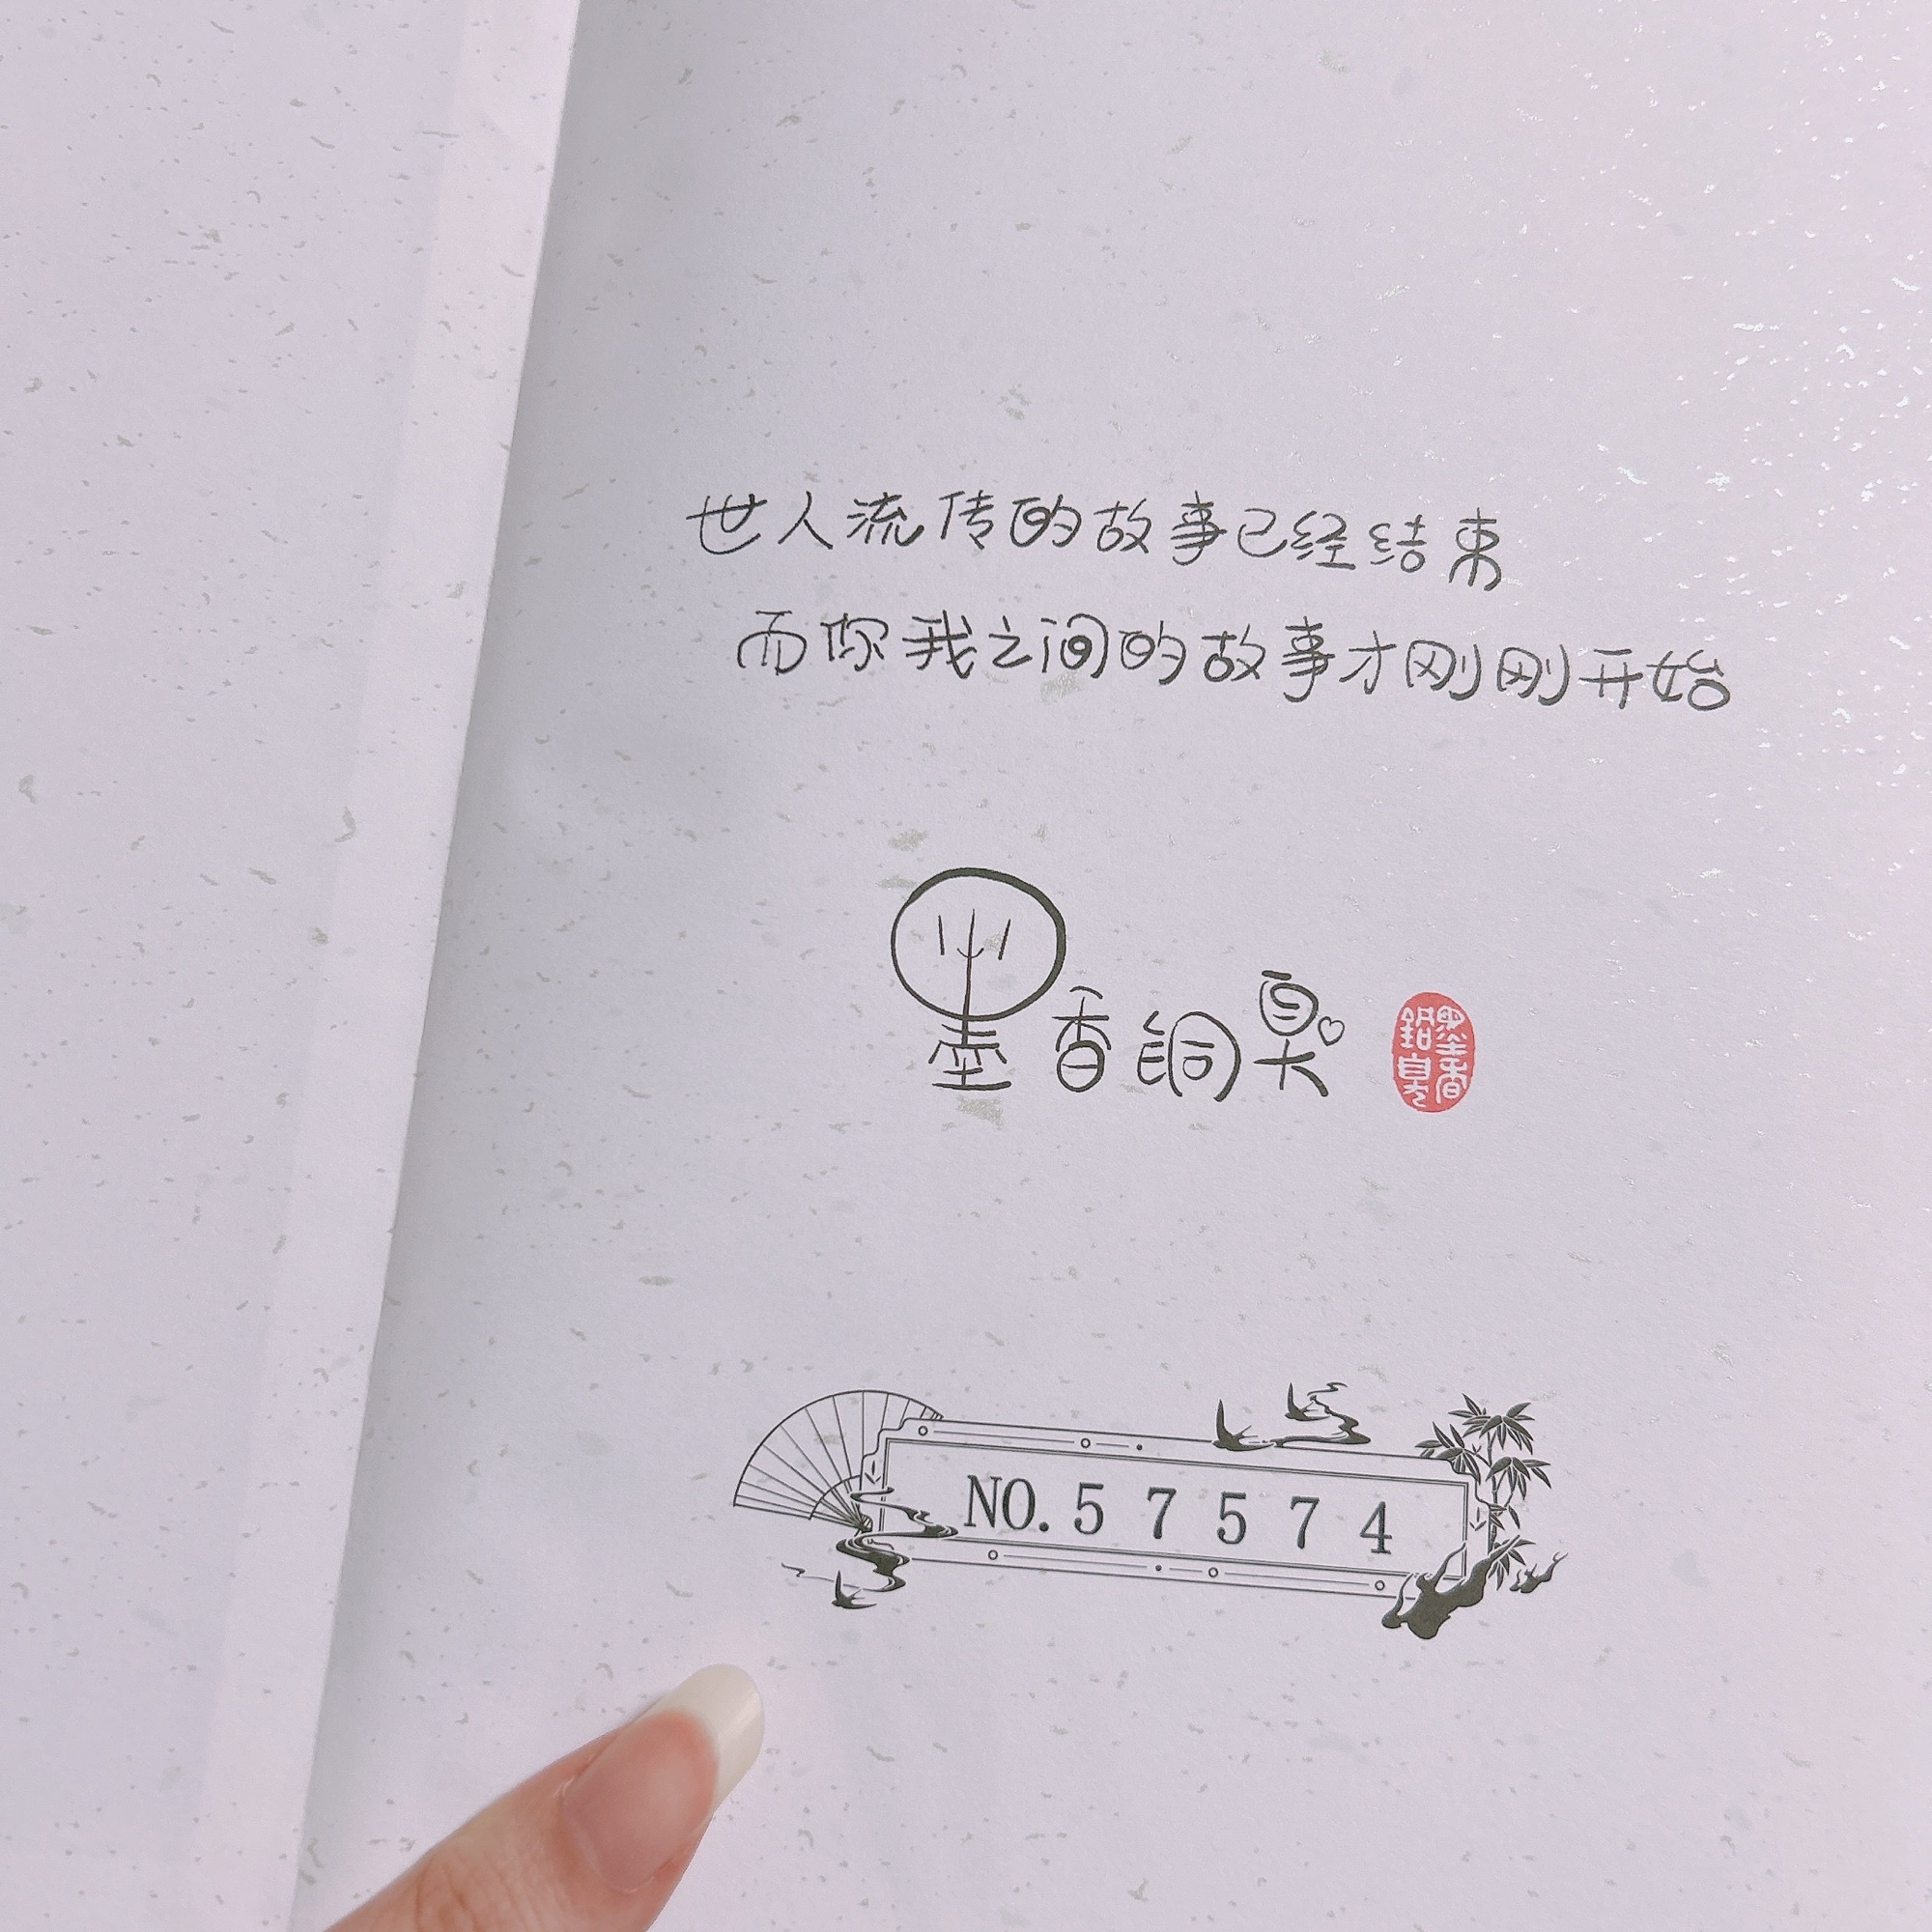 世人流传的故事已经结束
而你我之间的故事才刚刚开始
墨香铜臭
墨香铜臭
NO.57574